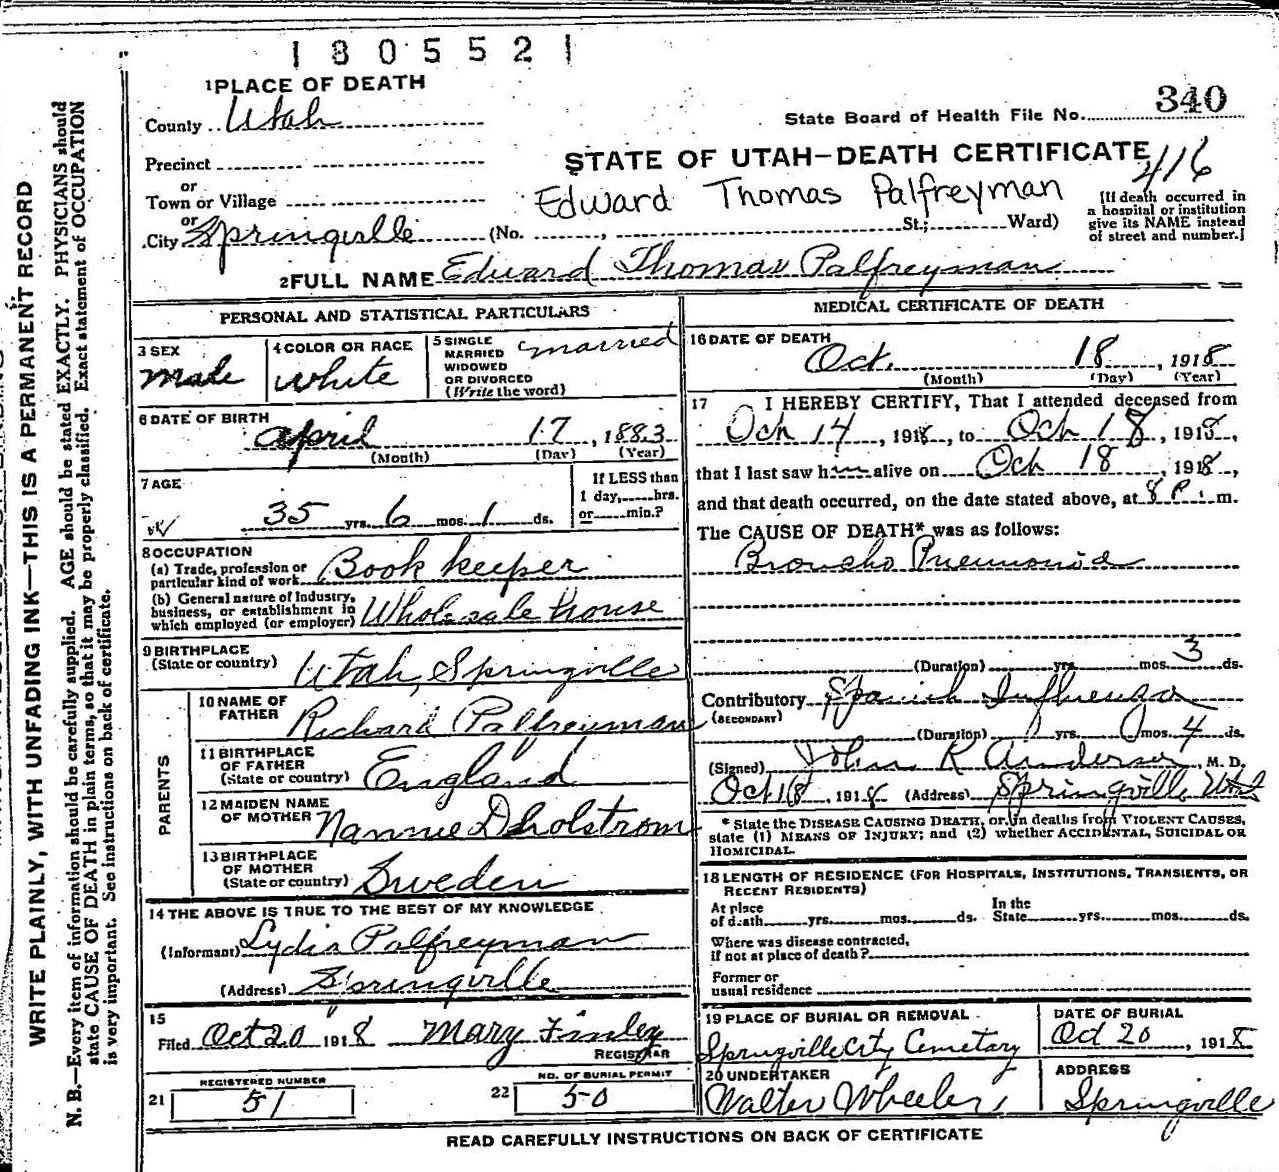 1805521
1 PLACE OF DEATH
County Utah
State Board of Health File No. 340
Precinct
STATE OF UTAH—DEATH CERTIFICATE
416
or
Town or Village
Edward Thomas Palfreyman
or
City Springville (No. , St.; Ward)
[If death occurred in
a hospital or institution
give its NAME instead
of street and number.]
2 FULL NAME Edward Thomas Palfreyman
PERSONAL AND STATISTICAL PARTICULARS
3 SEX
Male
4 COLOR OR RACE
White
5 SINGLE
MARRIED
WIDOWED
OR DIVORCED
(Write the word)
married
6 DATE OF BIRTH
April 17, 1883
(Month) (Day) (Year)
7 AGE
35 yrs. 6 mos. 1 ds.
If LESS than
1 day, hrs.
or min.?
8 OCCUPATION
(a) Trade, profession or
particular kind of work Book keeper
(b) General nature of Industry,
business, or establishment in
which employed (or employer) Wholesale house
9 BIRTHPLACE
(State or country) Utah, Springville
PARENTS
10 NAME OF
FATHER Richard Palfreyman
11 BIRTHPLACE
OF FATHER
(State or country) England
12 MAIDEN NAME
OF MOTHER Nannie
13 BIRTHPLACE
OF MOTHER
(State or country) Sweden
14 THE ABOVE IS TRUE TO THE BEST OF MY KNOWLEDGE
(Informant) Lydia Palfreyman
(Address) Springville
15
Filed Oct 20 1918 Mary Finley
REGISTRAR
REGISTERED NUMBER
21 51
NO. OF BURIAL PERMIT
22 50
MEDICAL CERTIFICATE OF DEATH
16 DATE OF DEATH
Oct. 18, 1918
(Month) (Day) (Year)
17 I HEREBY CERTIFY, That I attended deceased from
Oct 14, 1918, to Oct 18, 1918,
that I last saw h alive on Oct 18, 1918,
and that death occurred, on the date stated above, at 8 P. m.
The CAUSE OF DEATH* was as follows:
Broncho Pneumonia
(Duration) yrs. mos. 3 ds.
Contributory Spanish Influenza
(SECONDARY)
(Duration) yrs. 0 mos. 4 ds.
(Signed) John R Anderson, M. D.
Oct 18, 1918 (Address) Springville Utah
* State the DISEASE CAUSING DEATH, or, in deaths from VIOLENT CAUSES,
state (1) MEANS OF INJURY; and (2) whether ACCIDENTAL, SUICIDAL OR
HOMICIDAL.
18 LENGTH OF RESIDENCE (FOR HOSPITALS, INSTITUTIONS, TRANSIENTS, OR
RECENT RESIDENTS)
At place
of death yrs. mos. ds.
In the
State yrs. mos. ds.
Where was disease contracted,
if not at place of death?
Former or
usual residence
19 PLACE OF BURIAL OR REMOVAL
Springville City Cemetary
DATE OF BURIAL
Oct 20, 1918
20 UNDERTAKER
Walter Wheeler
ADDRESS
Springville
READ CAREFULLY INSTRUCTIONS ON BACK OF CERTIFICATE
WRITE PLAINLY, WITH UNFADING INK—THIS IS A PERMANENT RECORD
N. B.—Every item of information should be carefully supplied. AGE should be stated EXACTLY. PHYSICIANS should
state CAUSE OF DEATH in plain terms, so that it may be properly classified. Exact statement of OCCUPATION
is very important. See instructions on back of certificate.